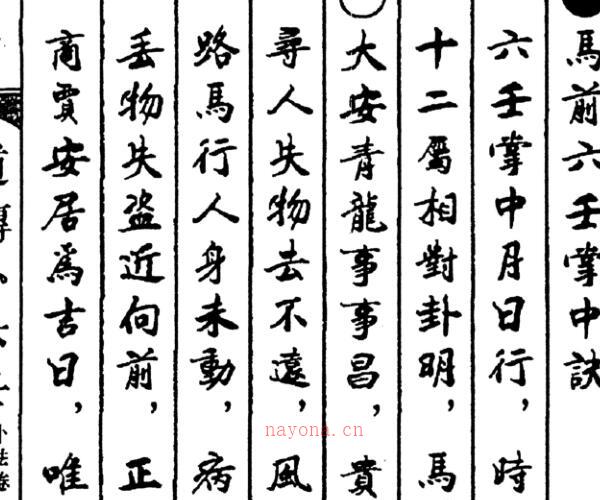 馬前六壬掌中訣
六壬掌中月日行，時
十二屬相對卦明，馬
大安青龍事事昌，貴
尋人失物去不遠，風
路馬行人身未動，病
丢物失盗近向前，正
商賈安居為吉日，唯
nayona.cn